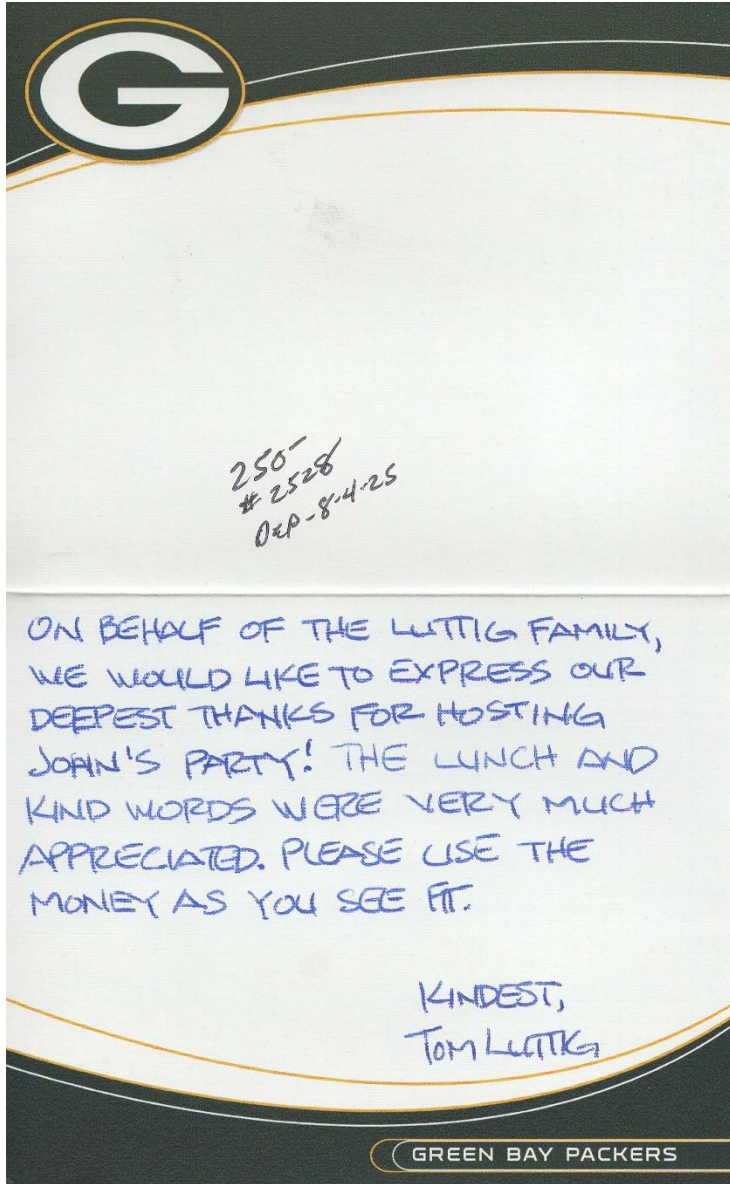 G
250-
# 2528
DEP-8-4-25
ON BEHALF OF THE LUTTIG FAMILY,
WE WOULD LIKE TO EXPRESS OUR
DEEPEST THANKS FOR HOSTING
JOHN'S PARTY! THE LUNCH AND
KIND WORDS WERE VERY MUCH
APPRECIATED. PLEASE USE THE
MONEY AS YOU SEE FIT.
KINDEST,
TOM LUTTIG
GREEN BAY PACKERS